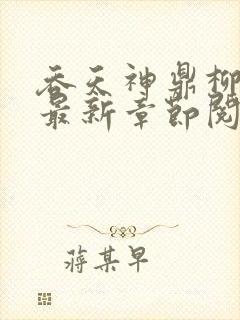 吞天神鼎柳
最新章节阅
蒋某早